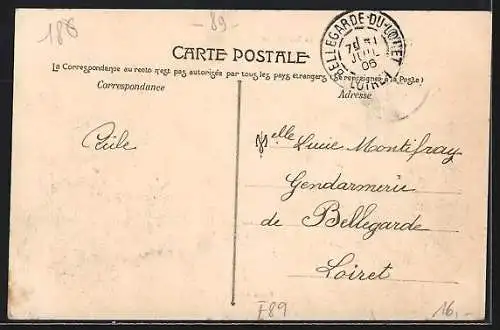 188
-89-
CARTE POSTALE
BELLEGARDE-DU-LOIRET
31
JUIL
06
LOIRET
La Correspondance au recto n'est pas autorisée par tous les pays étrangers (Se renseigner à la Poste)
Correspondance
Adresse
Melle Lucie Montifray
Gendarmerie
de Bellegarde
Loiret
E89
16,-